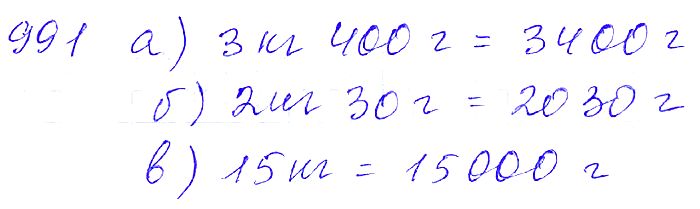 991 а) 3 кг 400 г = 3400 г
б) 2 кг 30 г = 2030 г
в) 15 кг = 15000 г